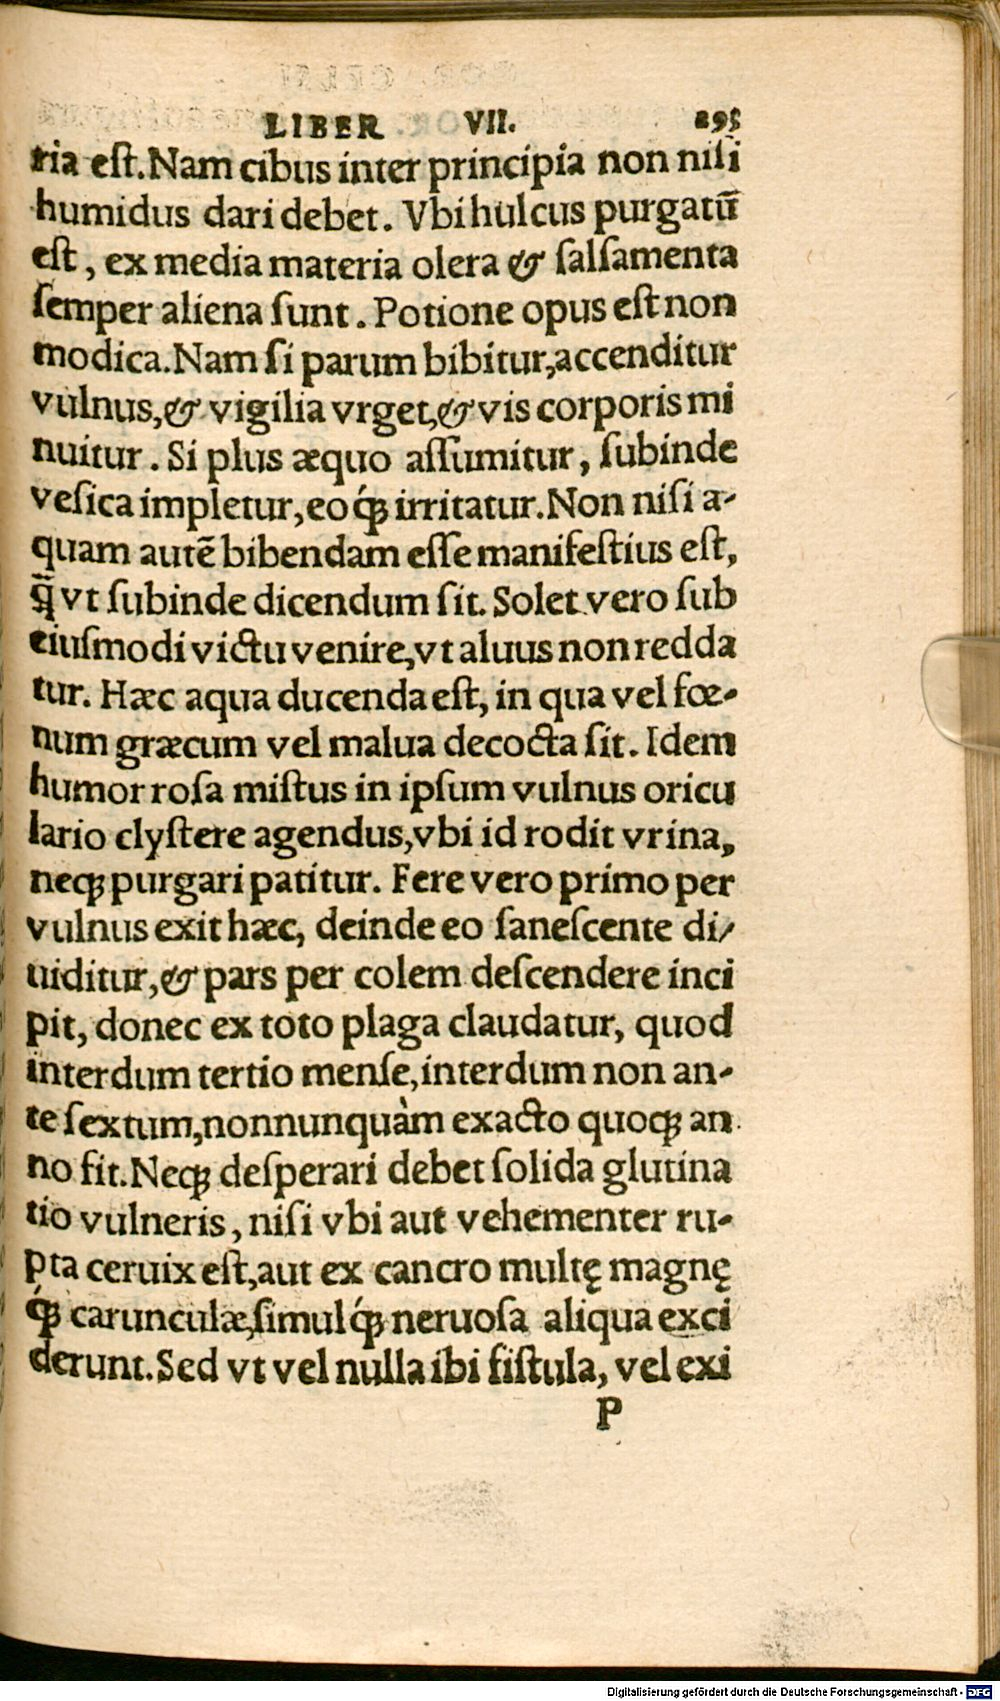 LIBER VII. 295
ria eſt. Nam cibus inter principia non niſi
humidus dari debet. Vbi hulcus purgatū
eſt, ex media materia olera & ſalſamenta
ſemper aliena ſunt. Potione opus eſt non
modica. Nam ſi parum bibitur, accenditur
vulnus, & vigilia vrget, & vis corporis mi
nuitur. Si plus æquo aſſumitur, ſubinde
veſica impletur, eoq́ꝫ irritatur. Non niſi a-
quam autẽ bibendam eſſe manifeſtius eſt,
q̄ vt ſubinde dicendum ſit. Solet vero ſub
eiuſmodi victu venire, vt aluus non redda
tur. Hæc aqua ducenda eſt, in qua vel fœ-
num græcum vel malua decocta ſit. Idem
humor roſa miſtus in ipſum vulnus oricu
lario clyſtere agendus, vbi id rodit vrina,
neqꝫ purgari patitur. Fere vero primo per
vulnus exit hæc, deinde eo ſaneſcente di/
uiditur, & pars per colem deſcendere inci
pit, donec ex toto plaga claudatur, quod
interdum tertio menſe, interdum non an-
te ſextum, nonnunquàm exacto quoqꝫ an
no fit. Neqꝫ deſperari debet ſolida glutina
tio vulneris, niſi vbi aut vehementer ru-
pta ceruix eſt, aut ex cancro multę magnę
q́ꝫ carunculæ, ſimulq́ꝫ neruoſa aliqua exci
derunt. Sed vt vel nulla ibi fiſtula, vel exi
P
Digitalisierung gefördert durch die Deutsche Forschungsgemeinschaft - DFG